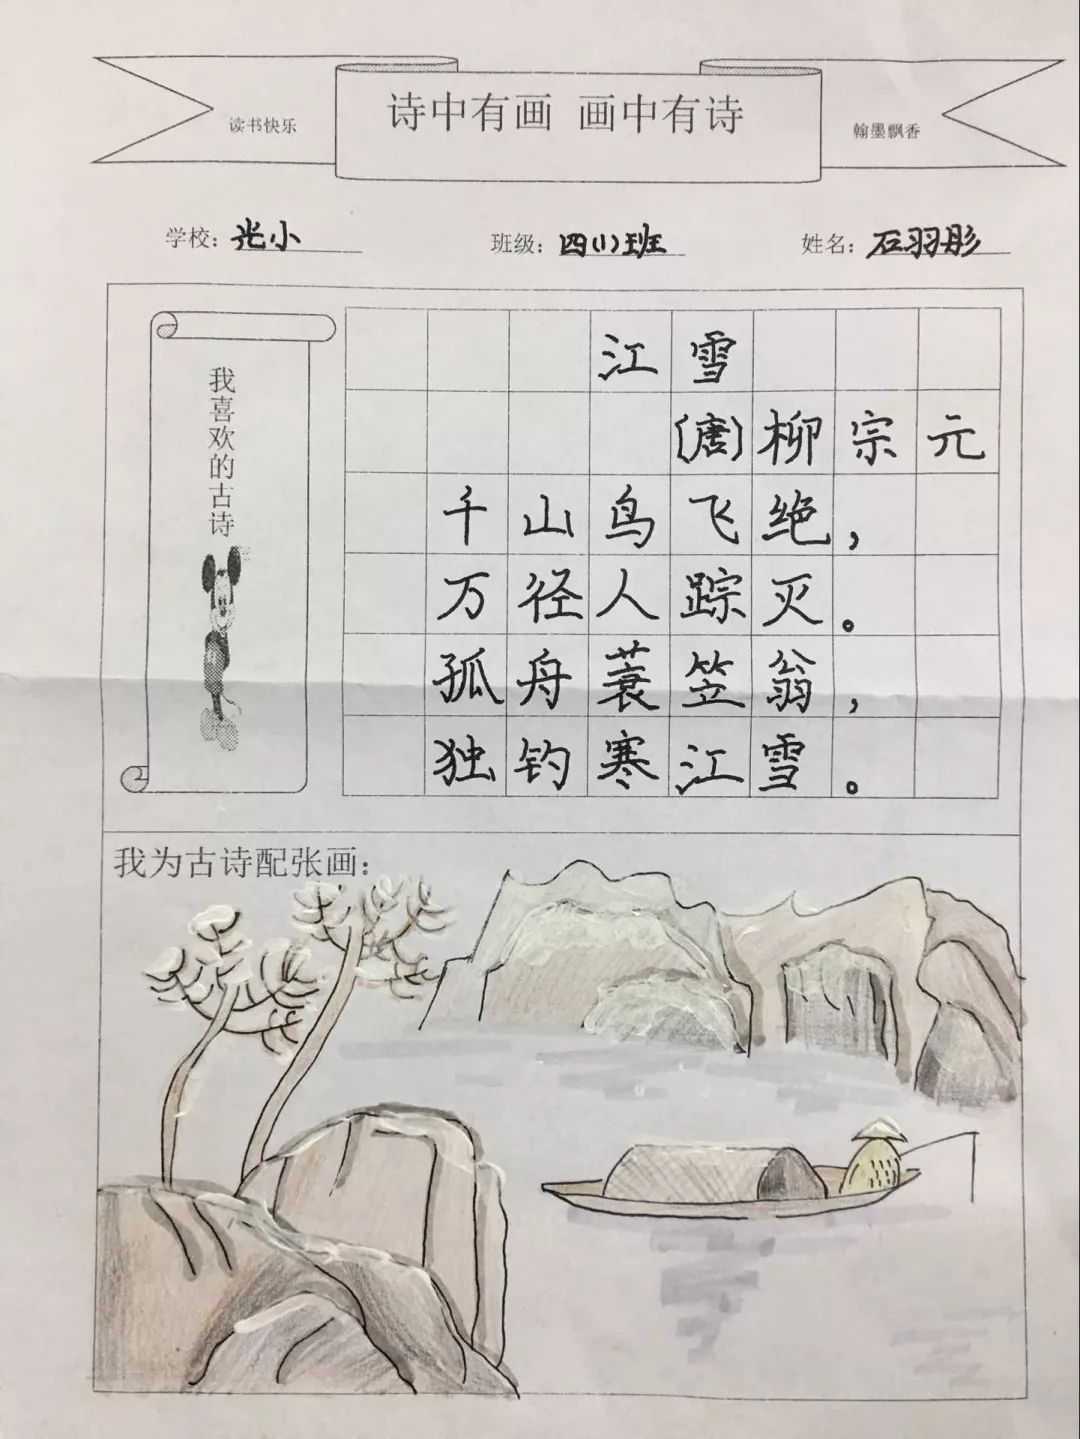 诗中有画 画中有诗
读书快乐
翰墨飘香
学校：光小 班级：四(1)班 姓名：石羽彤
我喜欢的古诗
江雪
(唐)柳宗元
千山鸟飞绝，
万径人踪灭。
孤舟蓑笠翁，
独钓寒江雪。
我为古诗配张画：